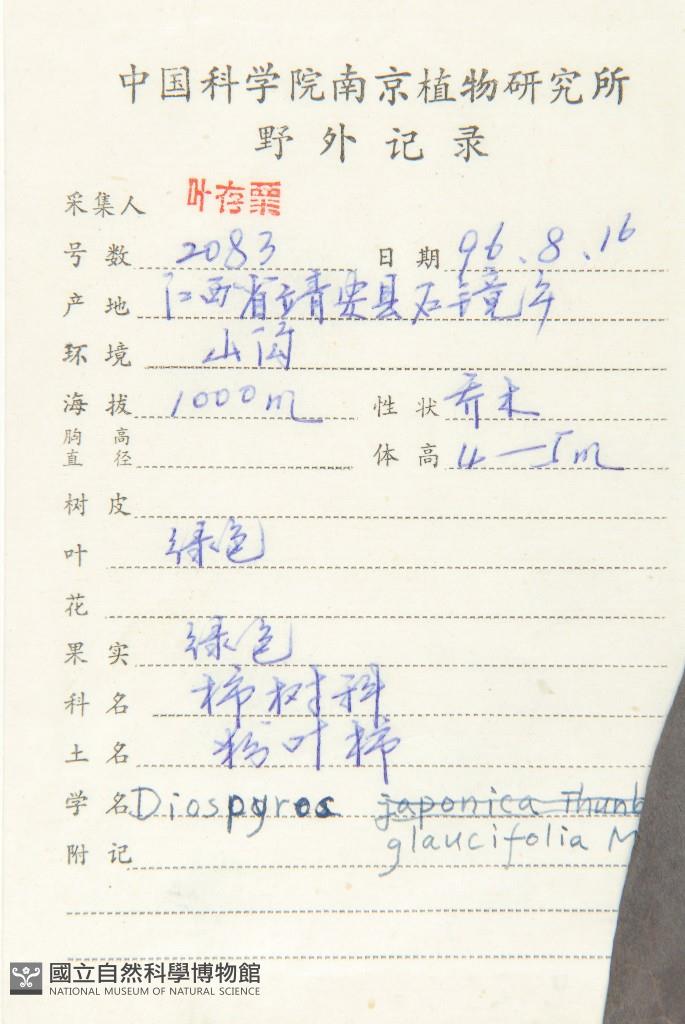 中国科学院南京植物研究所
野外记录
采集人 叶存粟
号数 2083 日期 96.8.16
产地 江西省靖安县石镜寺
环境 山沟
海拔 1000m 性状 乔木
胸高直径 体高 4—5m
树皮
叶 绿色
花
果实 绿色
科名 柿树科
土名 粉叶柿
学名 Diospyros japonica Thunb
附记 glaucifolia M
國立自然科學博物館
NATIONAL MUSEUM OF NATURAL SCIENCE